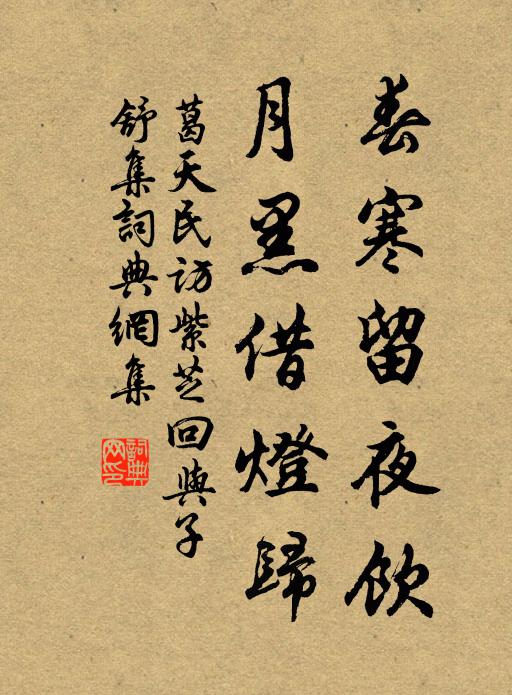 春寒留夜飲
月黑借燈歸
葛天民訪紫芝回與子
舒集詞典網集
詞典網印